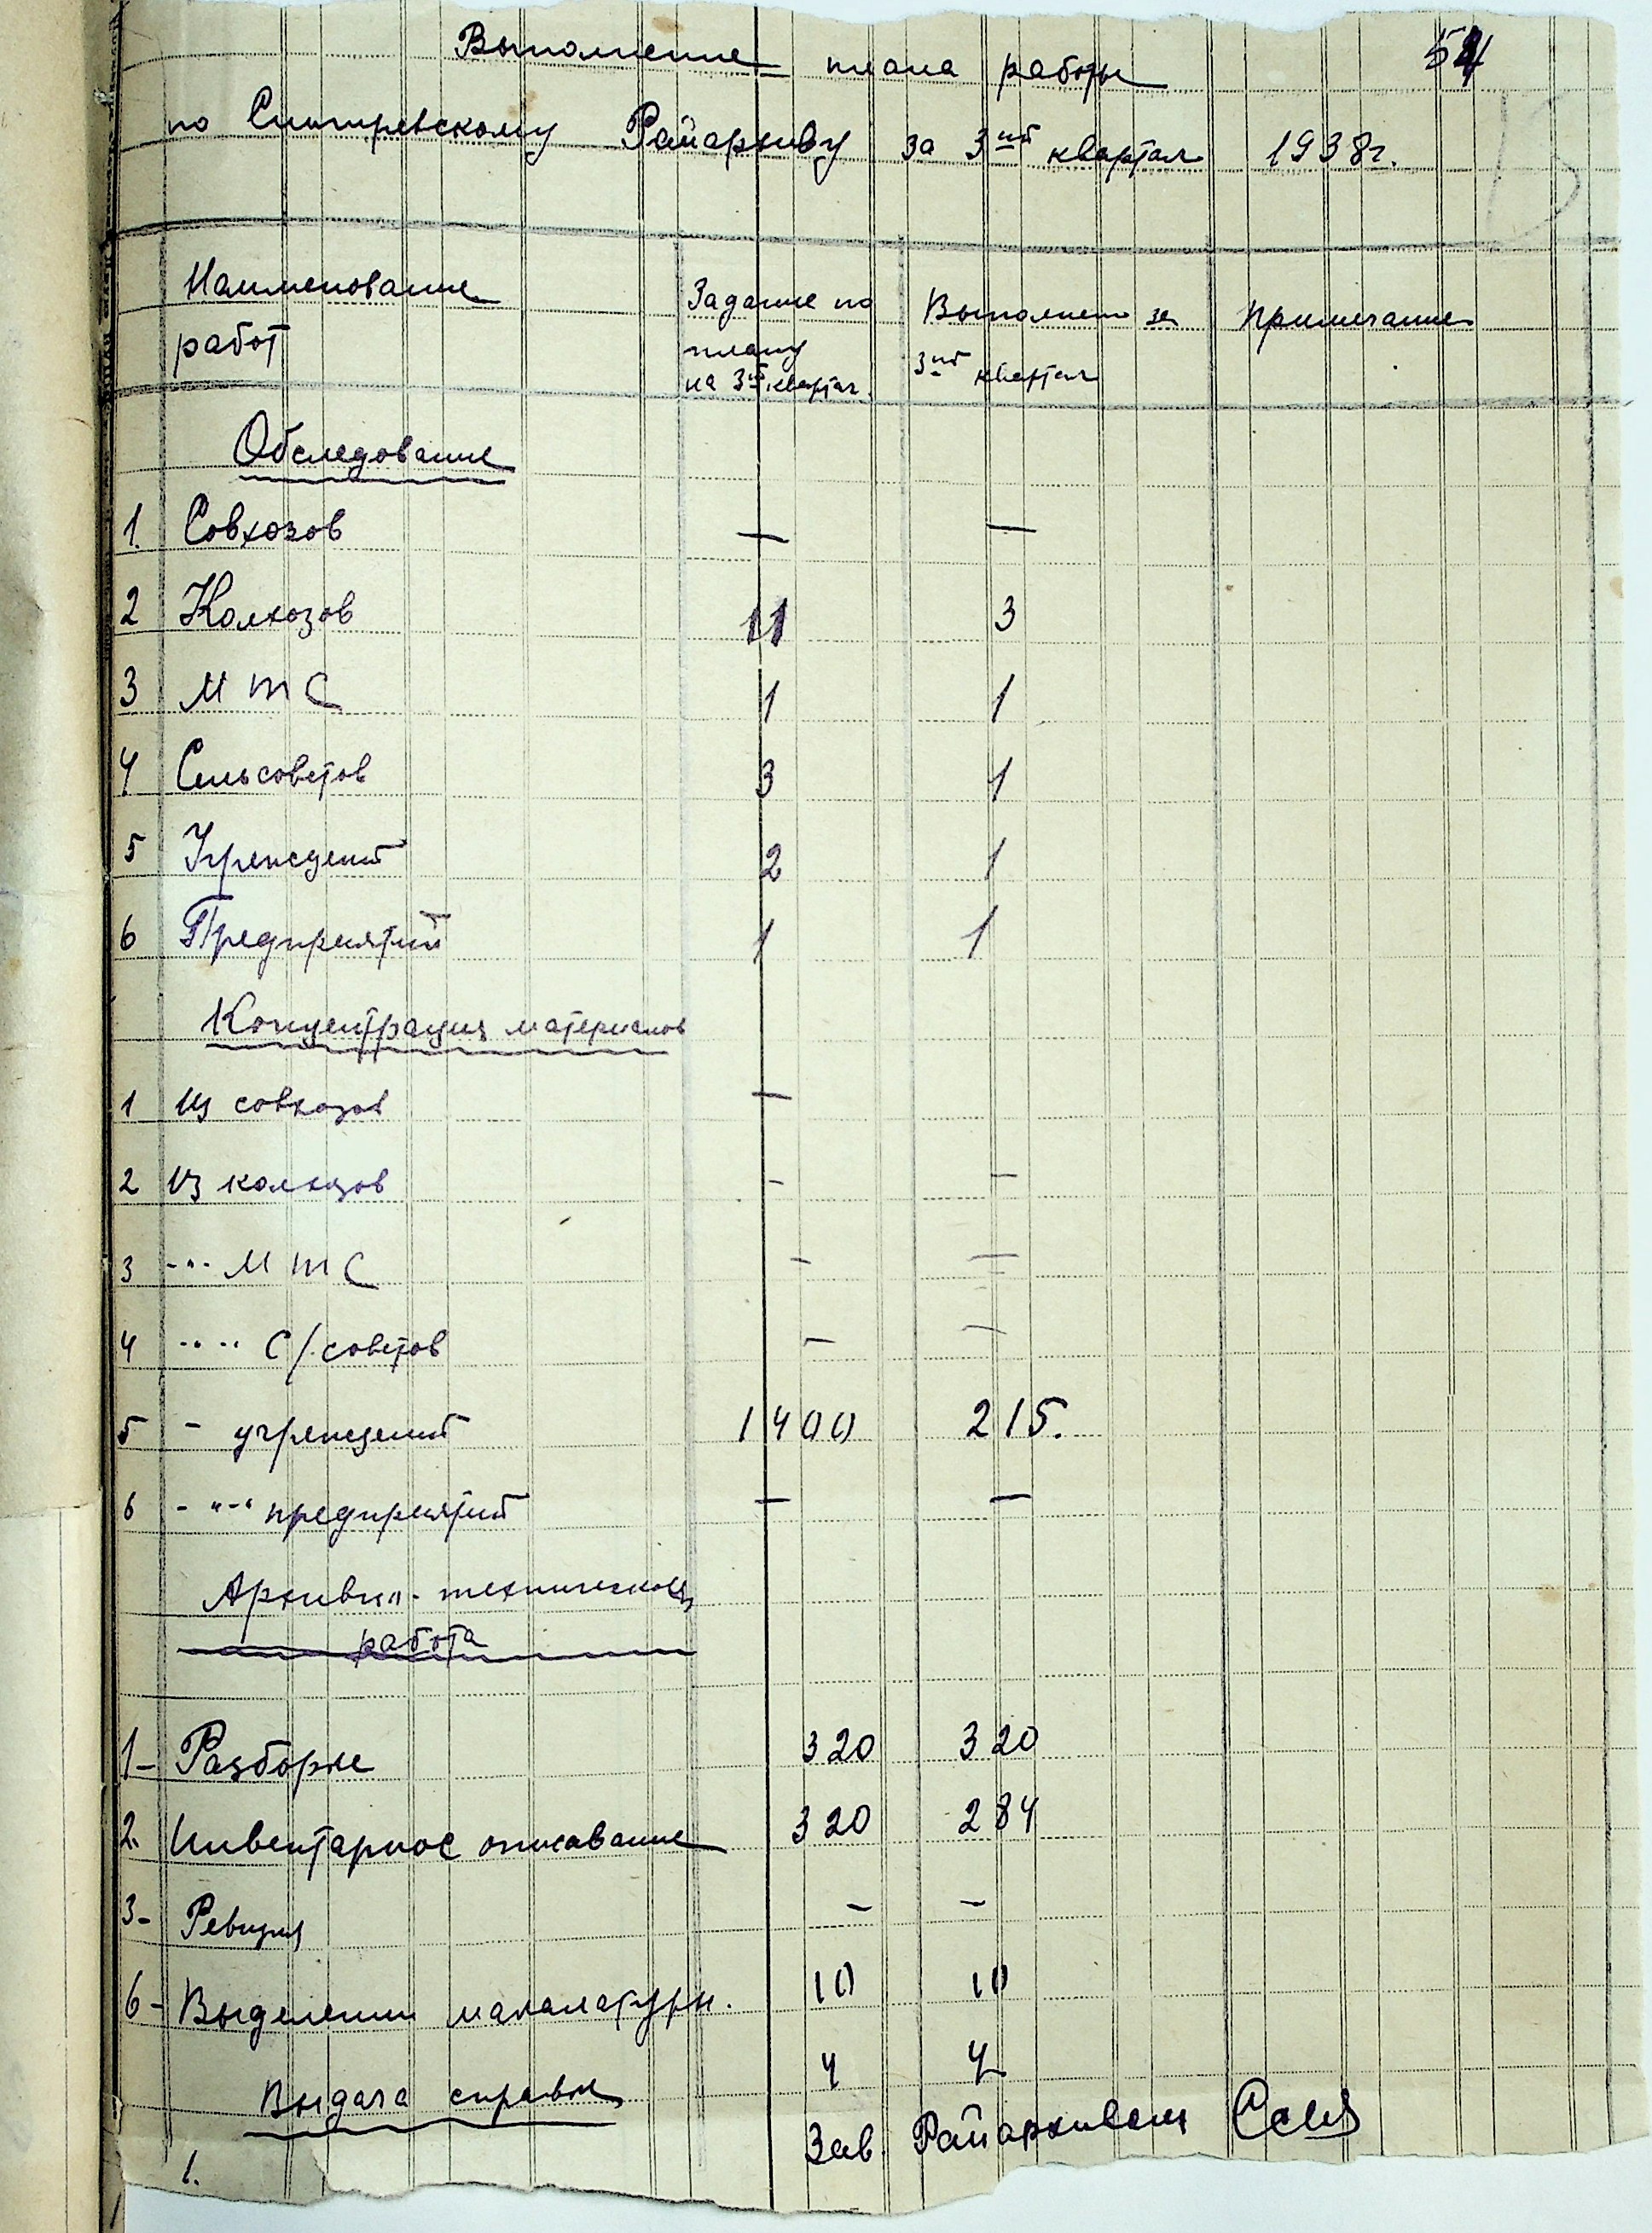 Выполнение плана работы 54
по Снигиревскому Райархиву за 3ий квартал 1938г.
Наименование работ Задание по плану на 3ий квартал Выполнено за 3ий квартал Примечание
Обследование
1. Совхозов — —
2 Колхозов 11 3
3 МТС 1 1
4 Сельсоветов 3 1
5 Учрежден́ий 2 1
6 Предприятий 1 1
Концентрация материалов
1 Из совхозов —
2 Из колхозов - —
3 -"- МТС - —
4 -"- С/советов — —
5 - учреждений 1400 215.
6 - "-" предприятий — —
Архивно-техническая
работа
1- Разборке 320 320
2. Инвентарное описавание 320 284
3- Ревизия — —
6- Выделении макалатуры. 10 10
Выдача справок 4 4
1. Зав. Райархивом